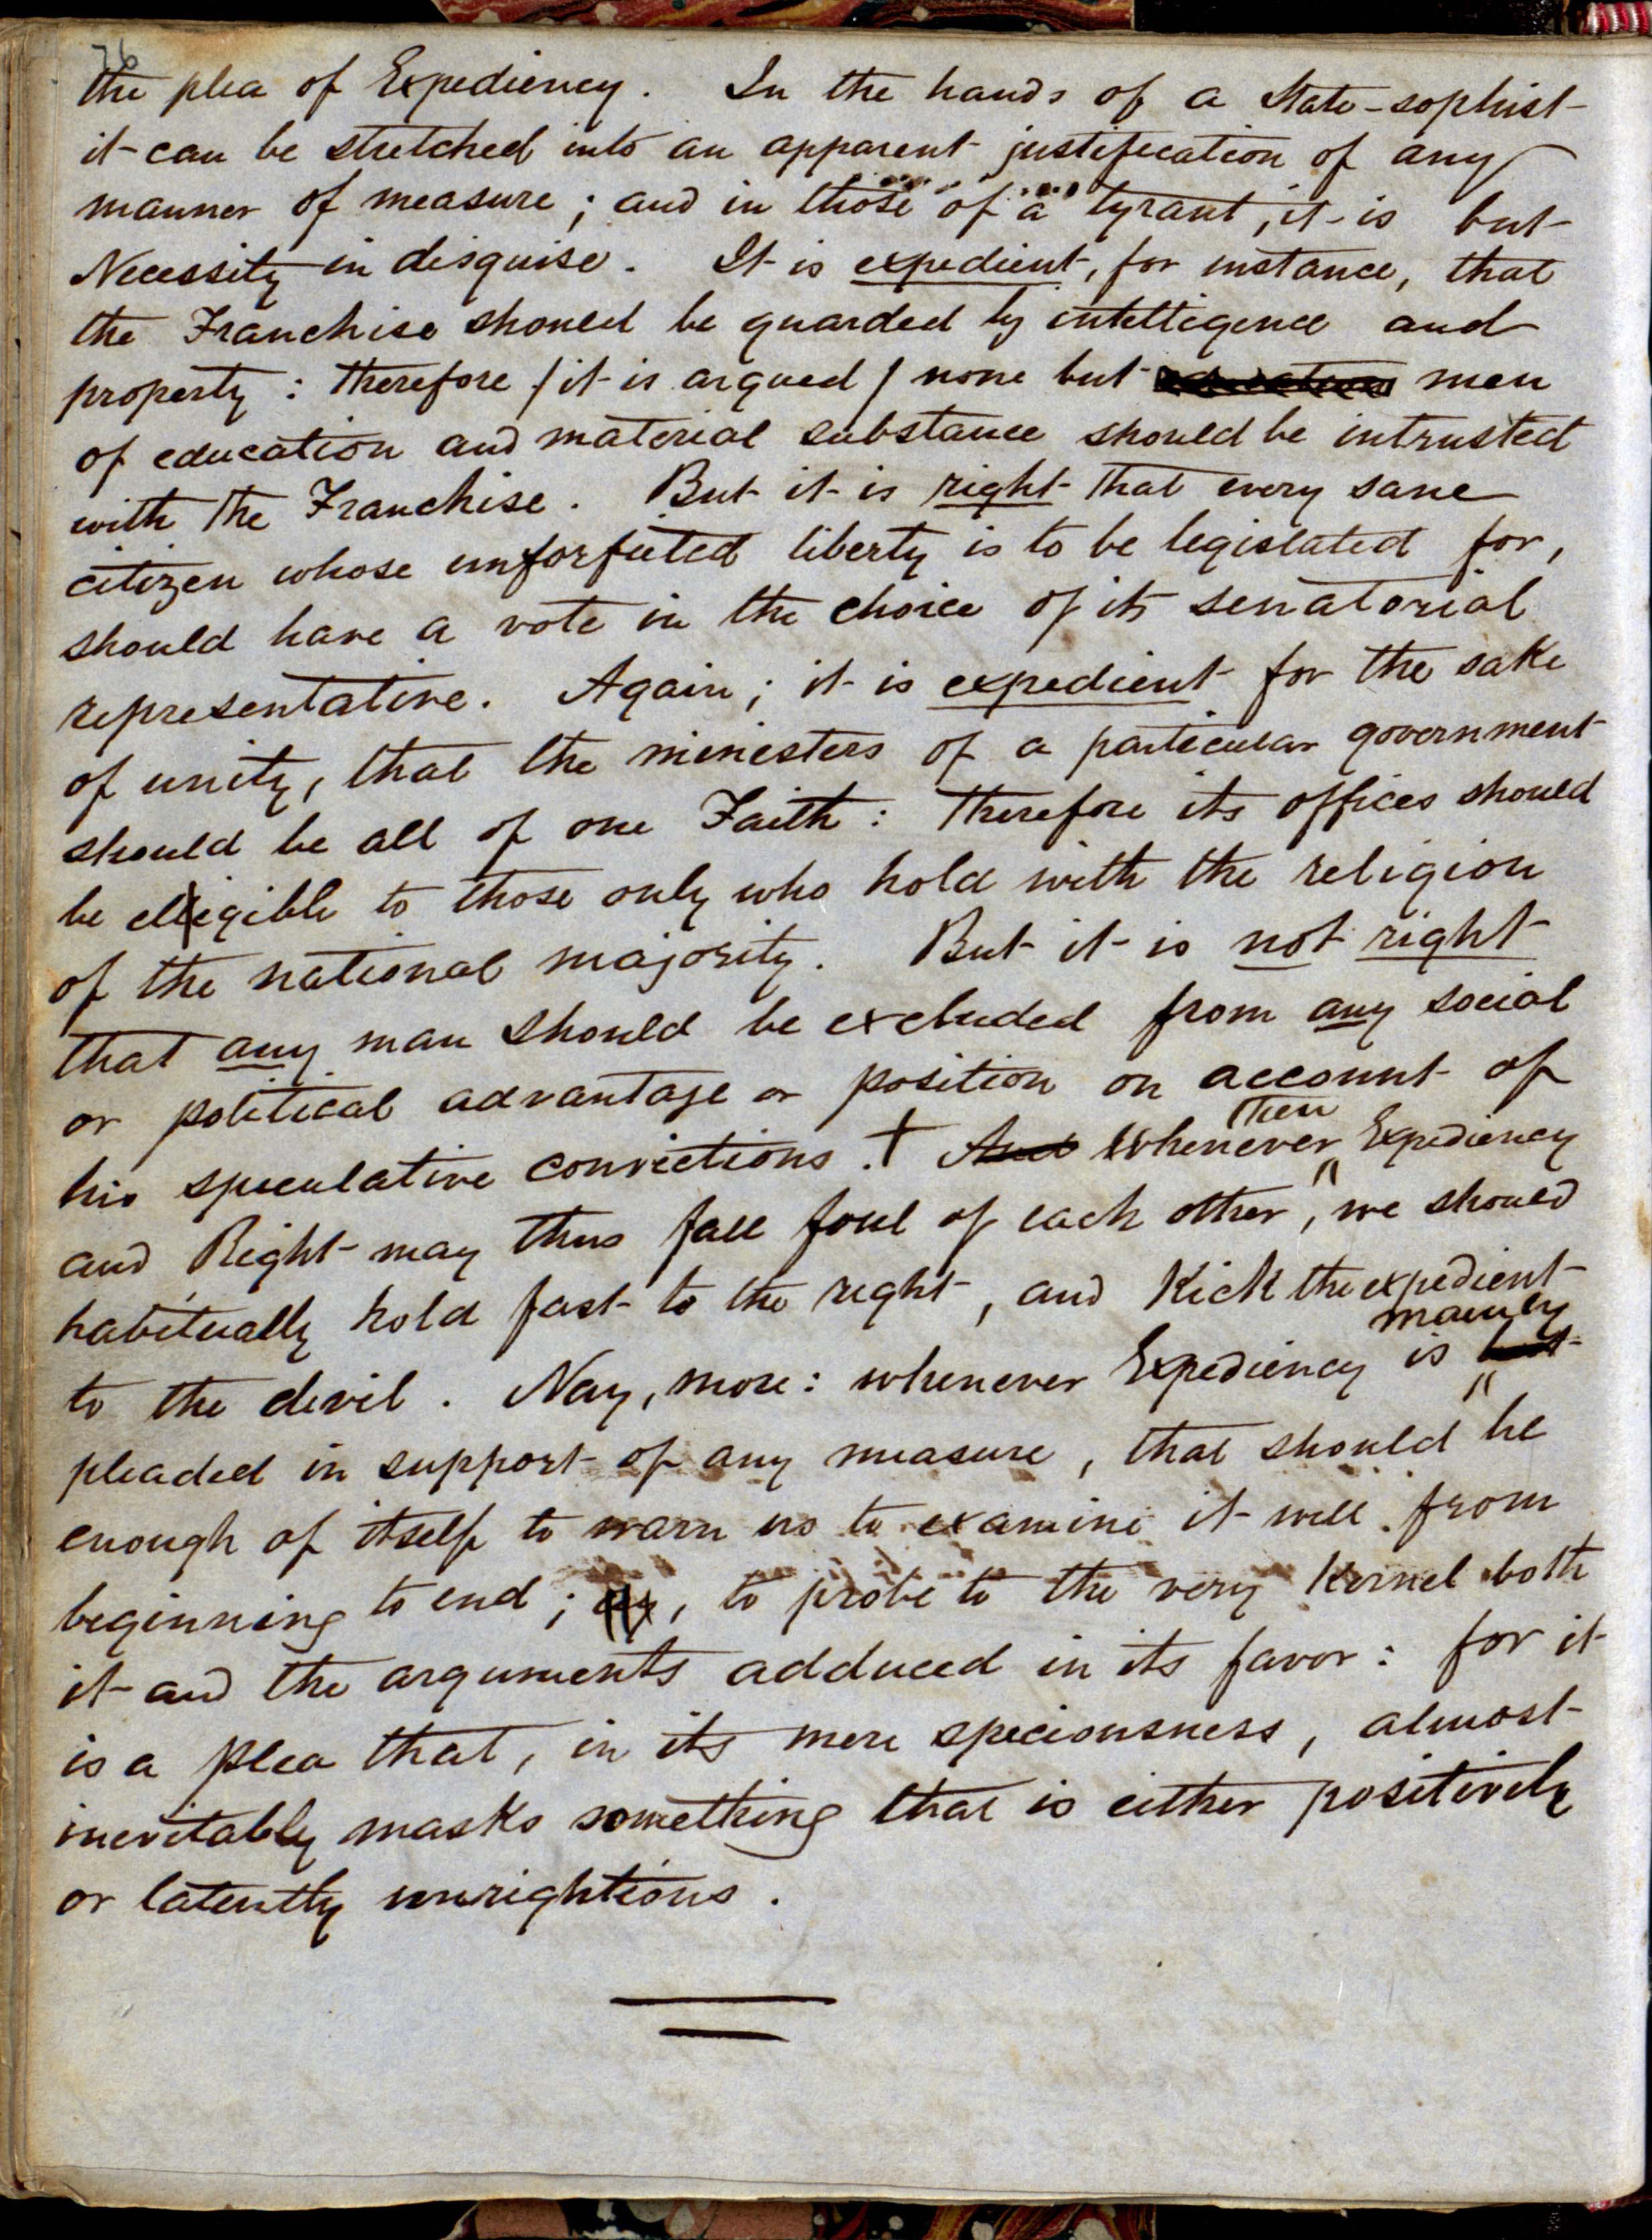 76
the plea of Expediency. In the hands of a State-sophist
it can be stretched into an apparent justification of any
manner of measure; and in those of a tyrant, it is but
Necessity in disguise. It is expedient, for instance, that
the Franchise should be guarded by intelligence and
property: therefore (it is argued) none but men
of education and material substance should be intrusted
with the Franchise. But it is right that every sane
citizen whose unforfeited liberty is to be legislated for,
should have a vote in the choice of its senatorial
representative. Again; it is expedient for the sake
of unity, that the ministers of a particular government
should be all of one Faith: therefore its offices should
be eligible to those only who hold with the religion
of the national majority. But it is not right
that any man should be excluded from any social
or political advantage or position on account of
then
his speculative convictions. + And Whenever Expediency
and Right may thus fall foul of each other, we should
habitually hold fast to the right, and kick the expedient
mainly
to the devil. Nay, more: whenever Expediency is but
pleaded in support of any measure, that should be
enough of itself to warn us to examine it well from
beginning to end; ay, to probe to the very kernel both
it and the arguments adduced in its favor: for it
is a plea that, in its mere speciousness, almost
inevitably masks something that is either positively
or latently unrightious.